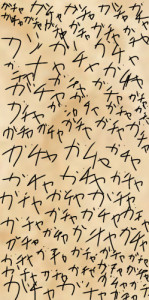 ガチャ ガチャ ガチャ ガチャ
ガチャ ガチャ ガチャ ガチャ
ガチャ ガチャ
ガチャ ガチャ ガチャ
ガチャ ガチャ ガチャ
ガチャ ガチャ ガチャ ガチャ
ガチャ ガチャ ガチャ ガチャ
ガチャ ガチャ
ガチャ ガチャ ガチャ
ガチャ ガチャ ガチャ
ガチャ ガチャ ガチャ
ガチャ ガチャ ガチャ ガチャ
ガチャ ガチャ ガチャ
ガチャ ガチャ ガチャ ガチャ
ガチャ ガチャ ガチャ ガチャ